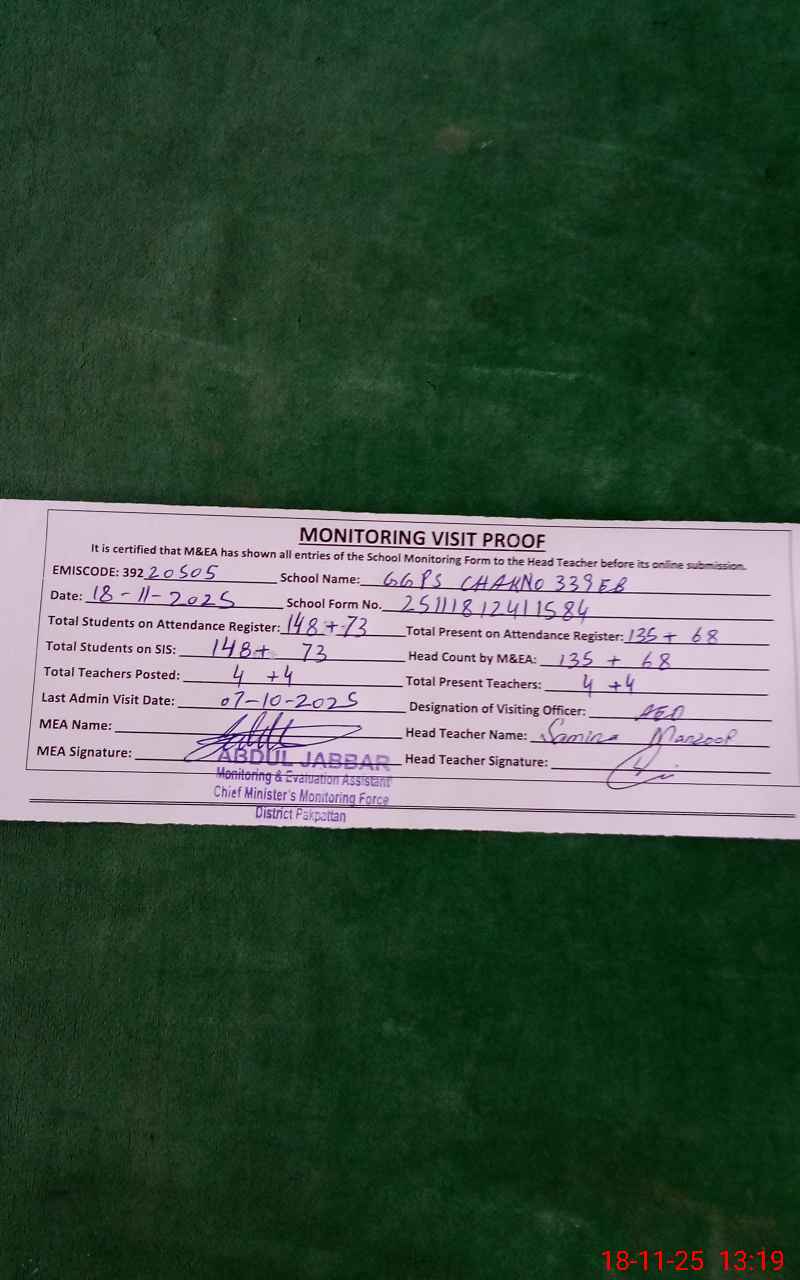 MONITORING VISIT PROOF
It is certified that M&EA has shown all entries of the School Monitoring Form to the Head Teacher before its online submission.
EMISCODE: 39220505 School Name: GGPS CHAKNO 339EB
Date: 18-11-2025 School Form No. 25111812411584
Total Students on Attendance Register: 148+73 Total Present on Attendance Register: 135+ 68
Total Students on SIS: 148+ 73 Head Count by M&EA: 135 + 68
Total Teachers Posted: 4 +4 Total Present Teachers: 4 +4
Last Admin Visit Date: 07-10-2025 Designation of Visiting Officer: AEO
MEA Name: Head Teacher Name: Samina Manzoor
MEA Signature: ABDUL JABBAR Head Teacher Signature:
Monitoring & Evaluation Assistant
Chief Minister's Monitoring Force
District Pakpattan
18-11-25 13:19